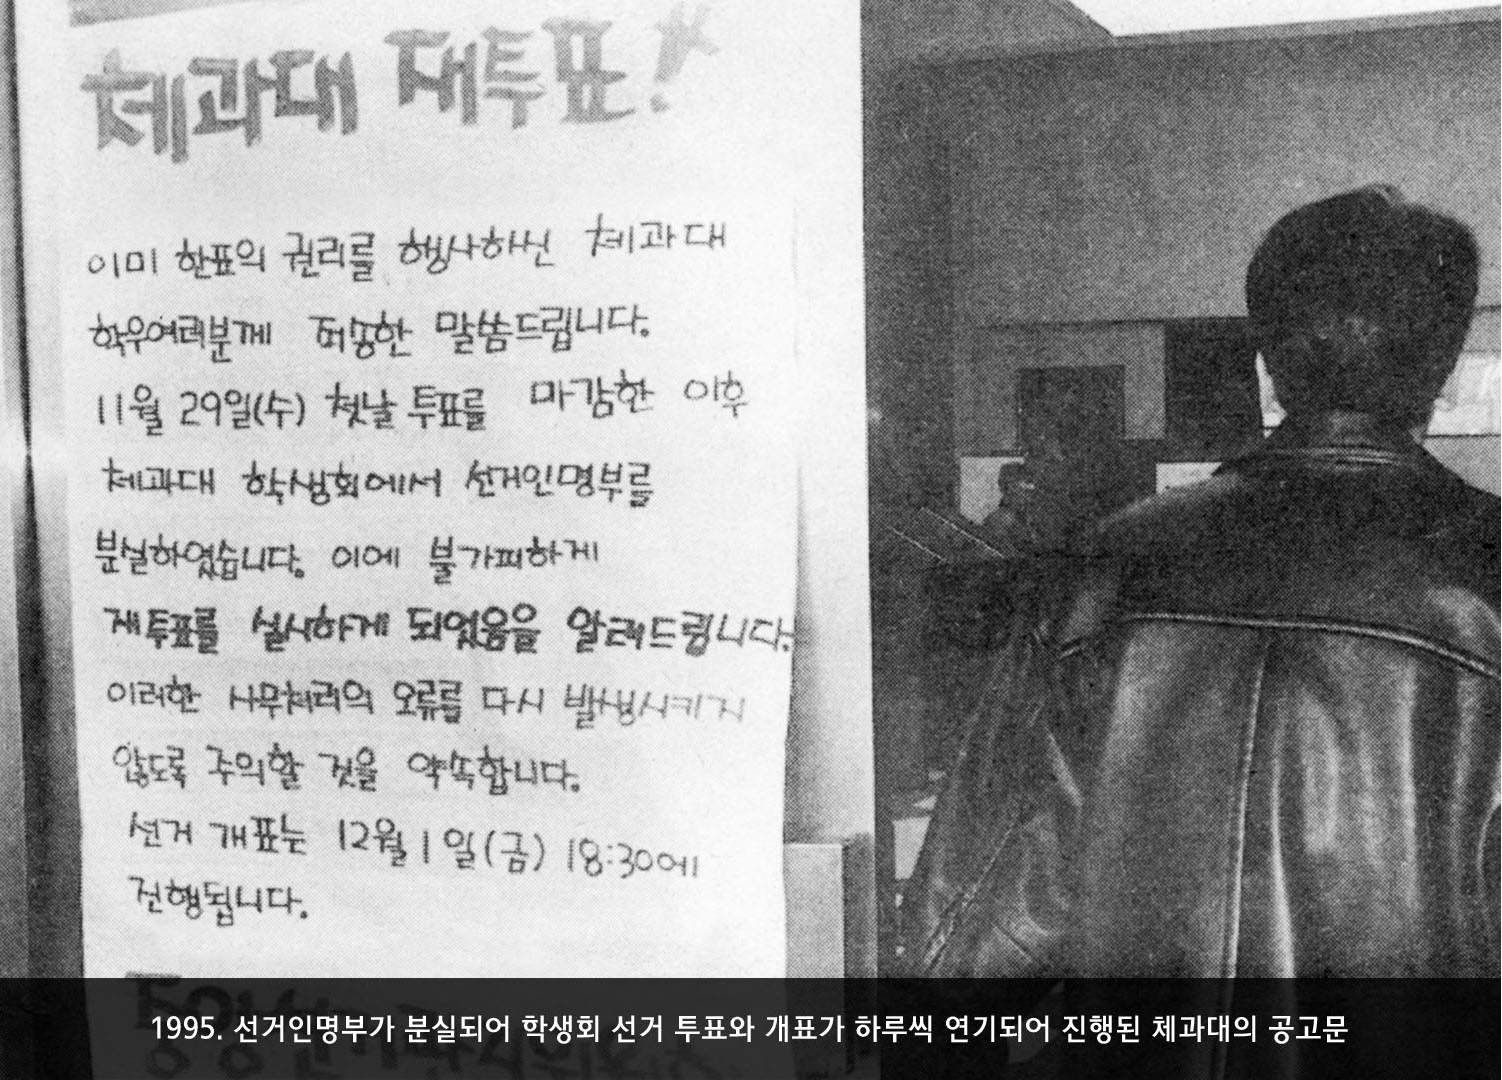 체과대 재투표!
이미 한표의 권리를 행사하신 체과대
학우여러분께 죄송한 말씀드립니다.
11월 29일(수) 첫날 투표를 마감한 이후
체과대 학생회에서 선거인명부를
분실하였습니다. 이에 불가피하게
재투표를 실시하게 되었음을 알려드립니다.
이러한 사무처리의 오류를 다시 발생시키지
않도록 주의할 것을 약속합니다.
선거 개표는 12월 1일(금) 18:30에
진행됩니다.
1995. 선거인명부가 분실되어 학생회 선거 투표와 개표가 하루씩 연기되어 진행된 체과대의 공고문